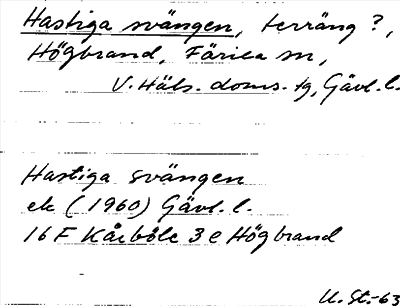 Hastiga svängen, terräng?,
Högbrand, Färila sn,
V. Häls. doms. tg, Gävl. l.
Hastiga svängen
ek (1960) Gävl. l.
16 F Kårböle 3 e Högbrand
U. St.-63